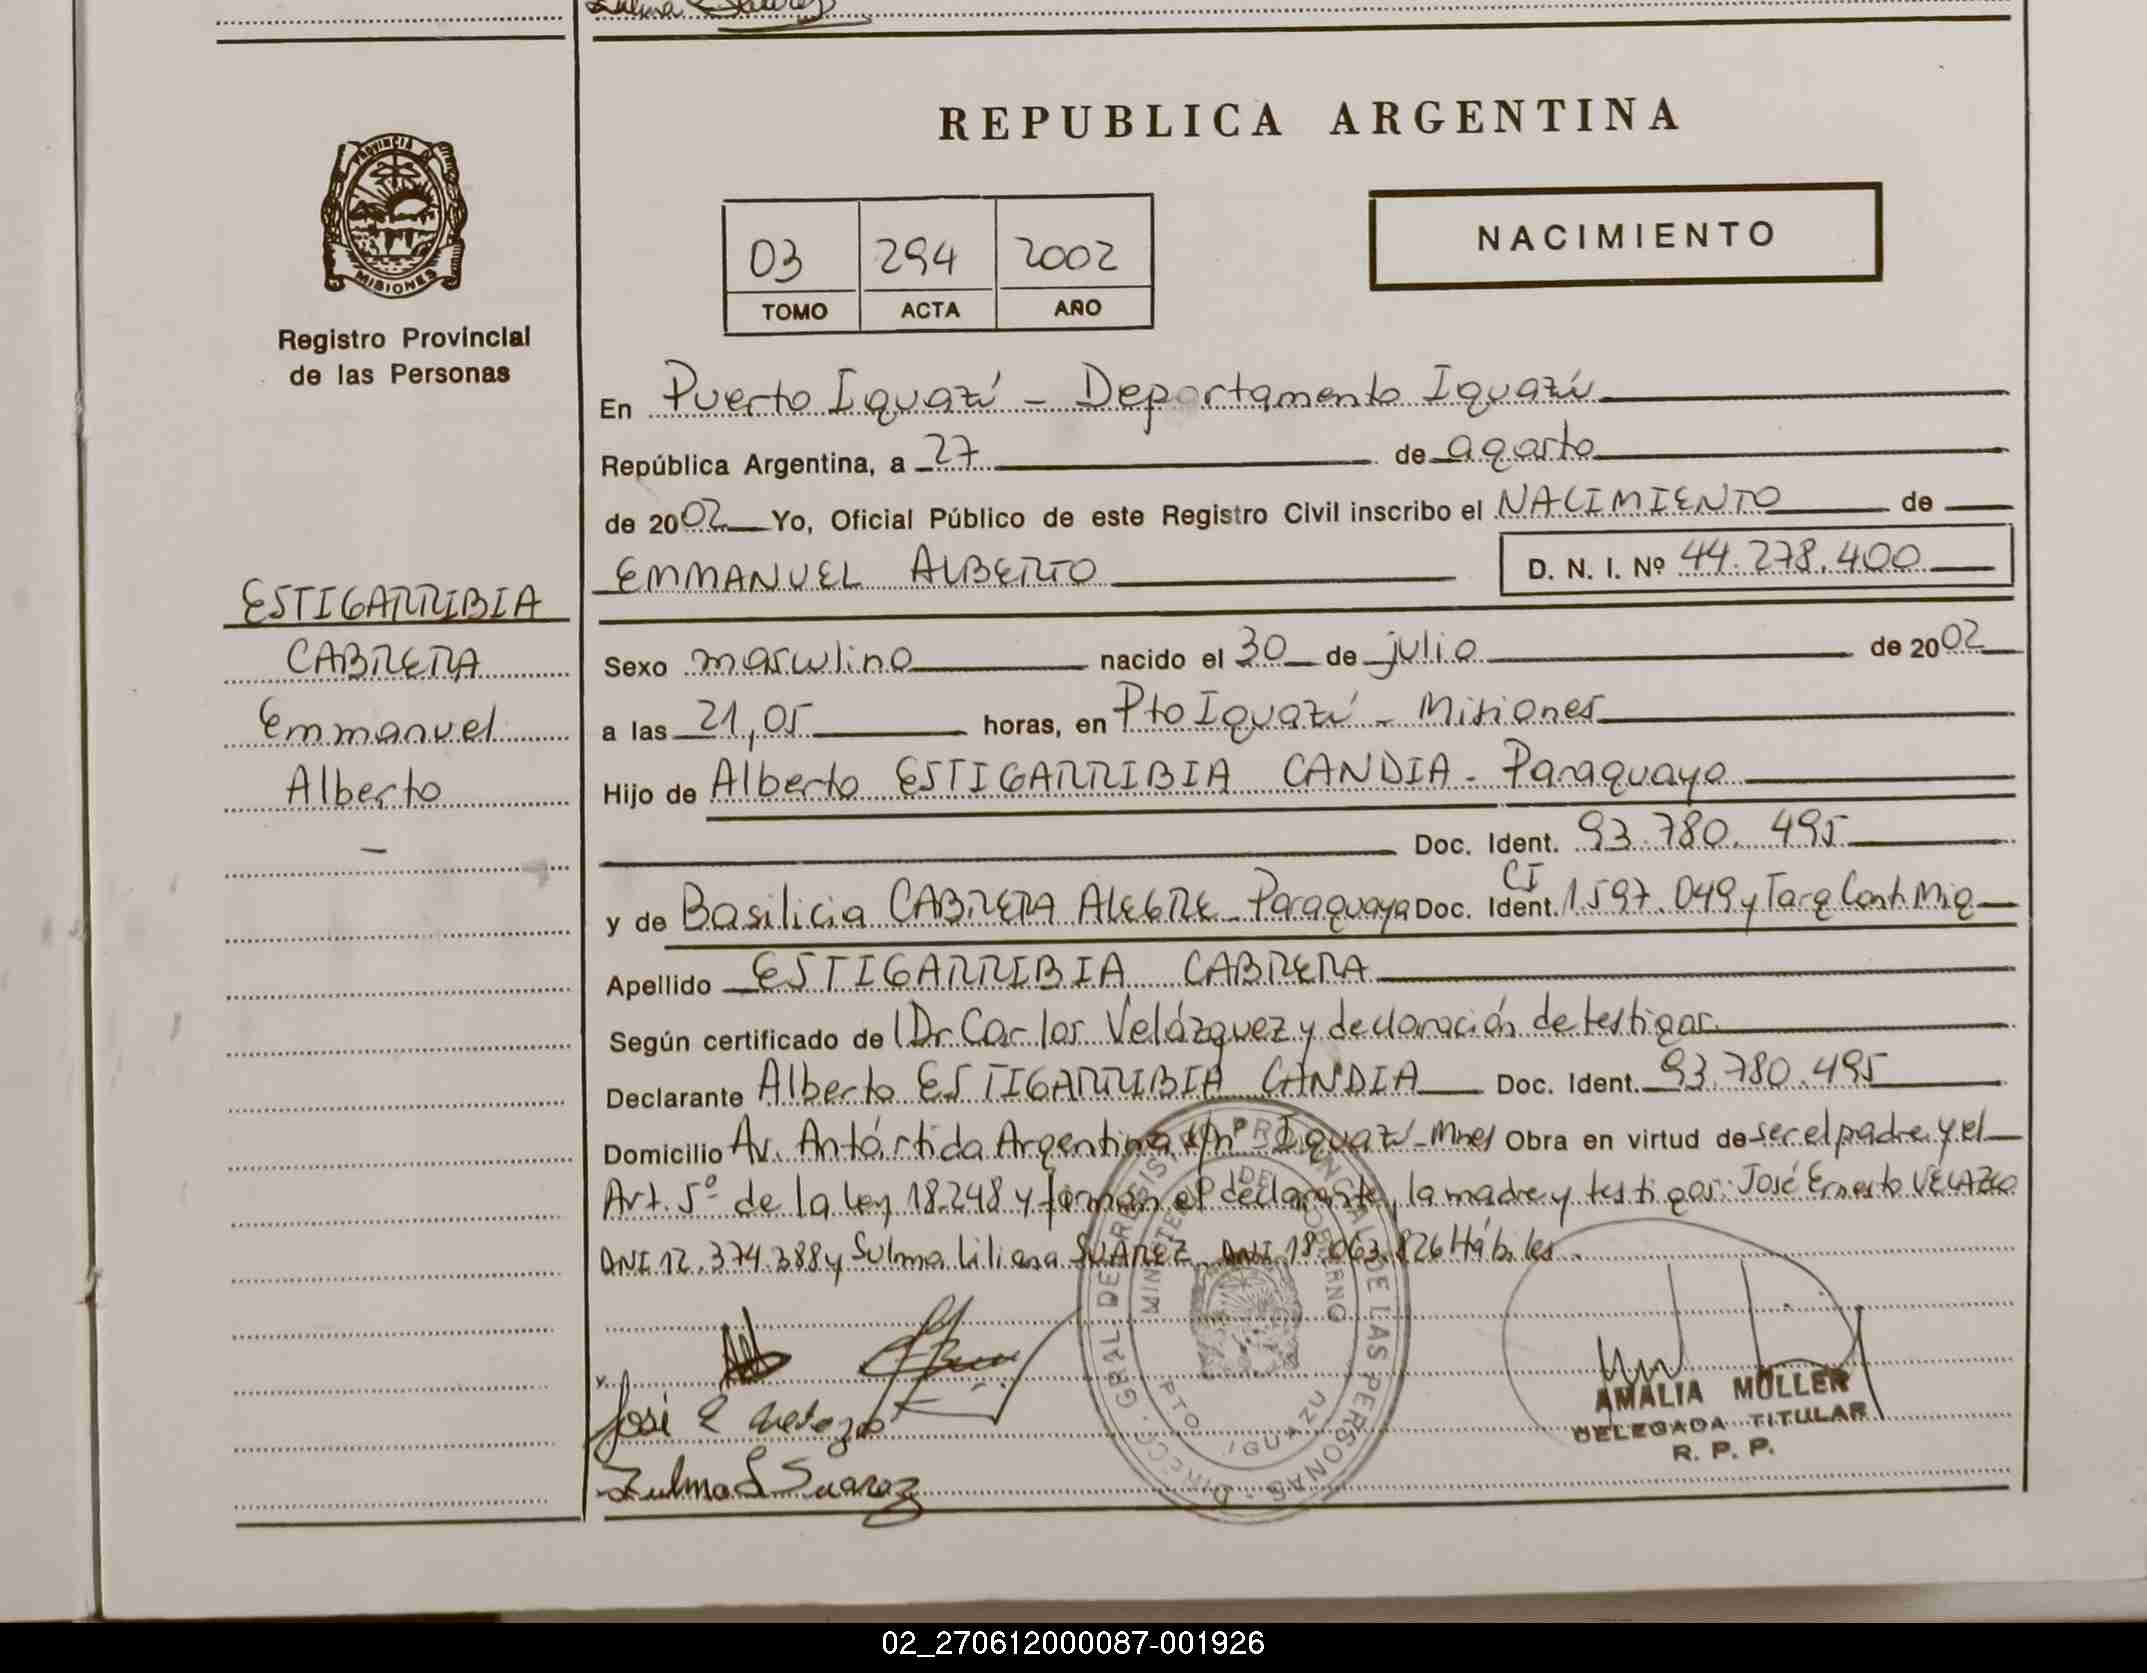 REPUBLICA ARGENTINA
PROVINCIA DE
MISIONES
Registro Provincial
de las Personas
03 294 2002
TOMO ACTA AÑO
NACIMIENTO
En Puerto Iguazú - Departamento Iguazú
República Argentina, a 27 de agosto
de 2002 Yo, Oficial Público de este Registro Civil inscribo el NACIMIENTO de
EMMANUEL ALBERTO D. N. I. Nº 44.278.400
ESTIGARRIBIA
CABRERA
Emmanuel
Alberto
-
Sexo masculino nacido el 30 de julio de 2002
a las 21,05 horas, en Pto Iguazú - Misiones
Hijo de Alberto ESTIGARRIBIA CANDIA - Paraguayo
Doc. Ident. 93.780.495
y de Basilicia CABRERA ALEGRE - Paraguaya Doc. Ident. CI 1.597.049 y Targ Cont. Mig
Apellido ESTIGARRIBIA CABRERA
Según certificado de Dr Carlos Velázquez y declaración de testigos.
Declarante Alberto ESTIGARRIBIA CANDIA Doc. Ident. 93.780.495
Domicilio Av. Antártida Argentina s/nº - Iguazú - Mnes Obra en virtud de ser el padre y el
Art. 5º de la ley 18.248 y forman el declarante, la madre y testigos: José Ernesto VELAZCO
DNI 12.374.388 y Sulma Liliana SUAREZ DNI 18.063.826 Hábiles.
DIRECC. GRAL. DE REGISTRO PROVINCIAL DE LAS PERSONAS
MINISTERIO DE GOBIERNO
PTO IGUAZU
José E
Zulma L Suarez
AMALIA MÜLLER
DELEGADA TITULAR
R. P. P.
02_270612000087-001926